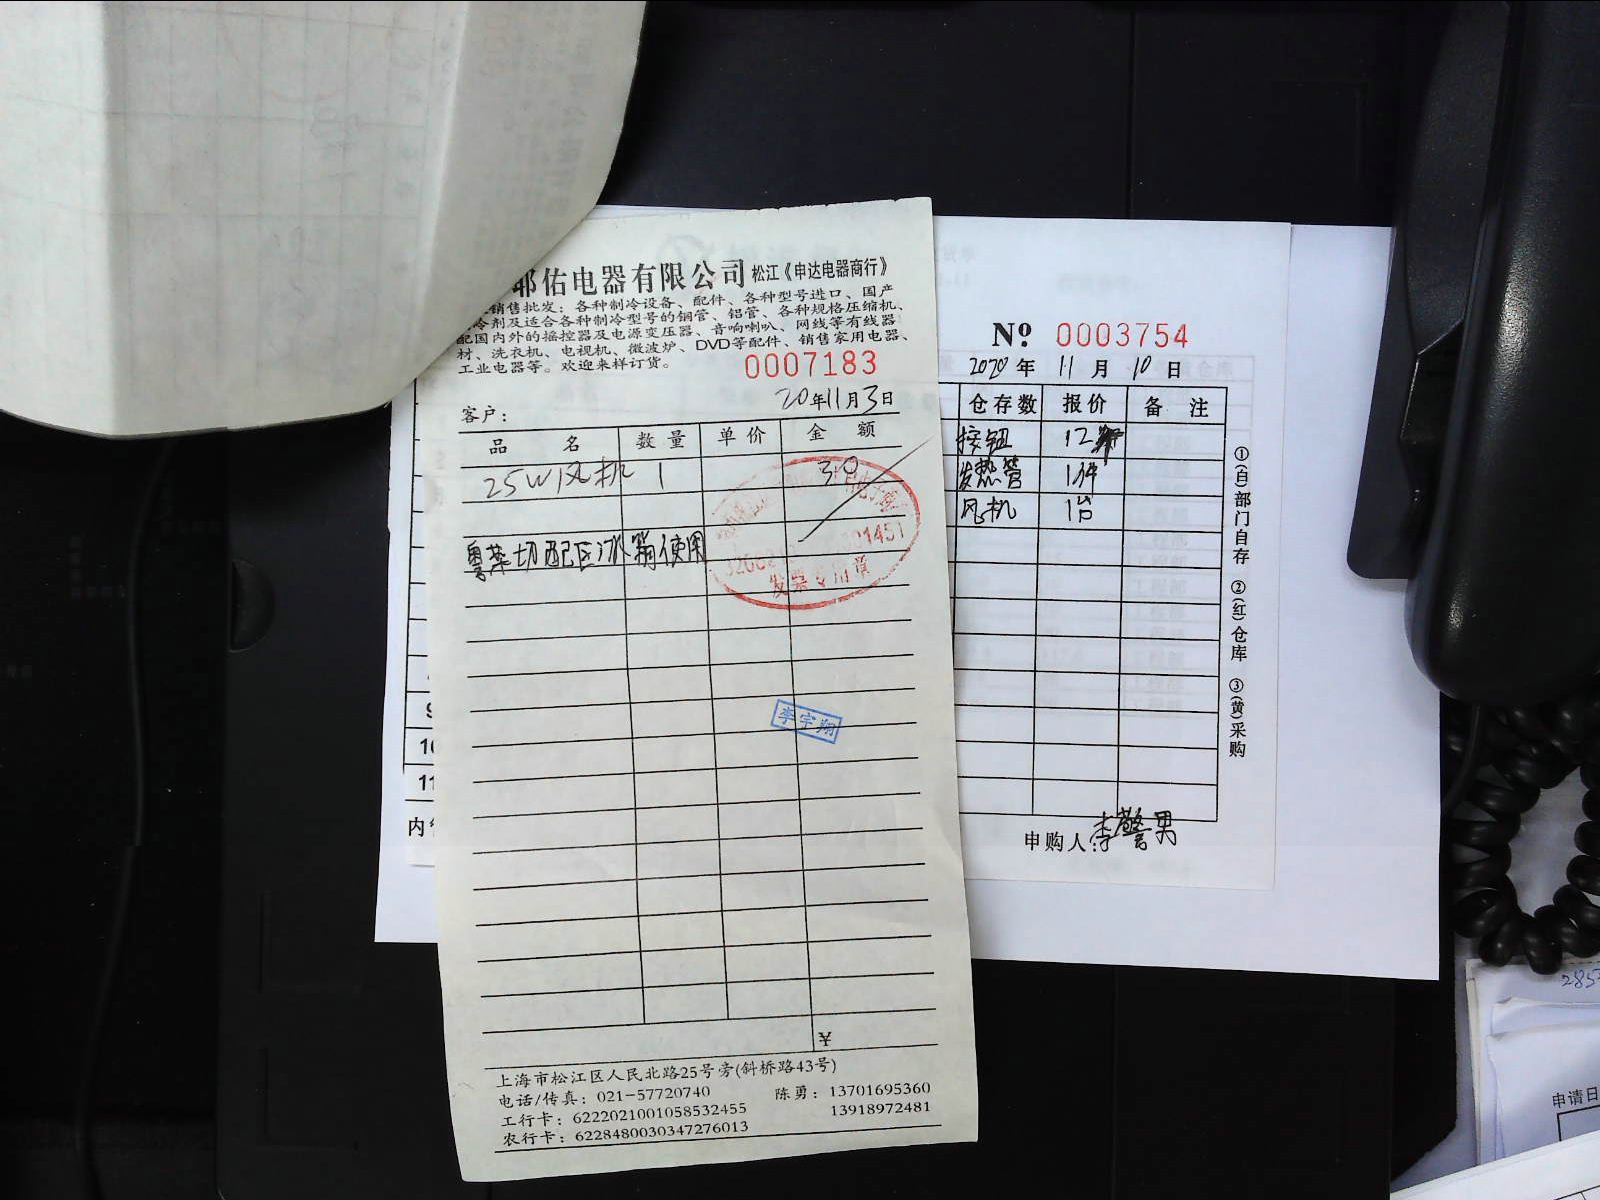 佑电器有限公司 松江《申达电器商行》
销售批发：各种制冷设备、配件、各种型号进口、国产
冷剂及适合各种制冷型号的铜管、铝管、各种规格压缩机、
配国内外的摇控器及电源变压器、音响喇叭、网线等有线器
材、洗衣机、电视机、微波炉、DVD等配件、销售家用电器、
工业电器等。欢迎来样订货。
0007183
20年11月3日
客户：
品 名 数量 单价 金 额
25W风机 1 30
粤菜切配区冰箱使用
1451
发票专用章
李宇翔
¥
上海市松江区人民北路25号旁(斜桥路43号)
电话/传真：021-57720740 陈勇：13701695360
工行卡：6222021001058532455 13918972481
农行卡：6228480030347276013
Nº 0003754
2020年 11月 10日
仓存数 报价 备 注
按钮 12
发热管 1件
风机 1台
①(自)部门自存 ②(红)仓库 ③(黄)采购
申购人:李警男
10
11
内
285
申请日